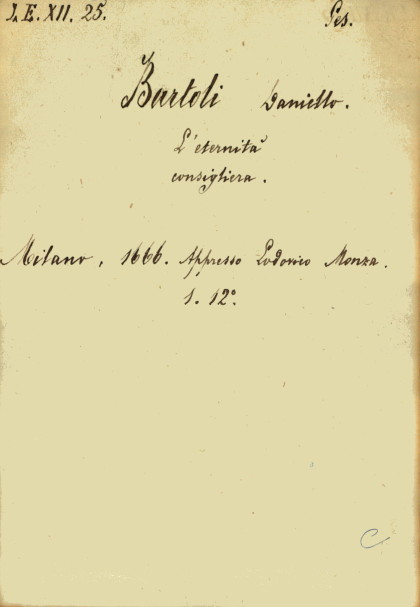 J. E. XII. 25. Ges.
Bartoli Daniello.
L'eternità
consigliera.
Milano, 1666. Appresso Lodovico Monza.
1. 12°.
C